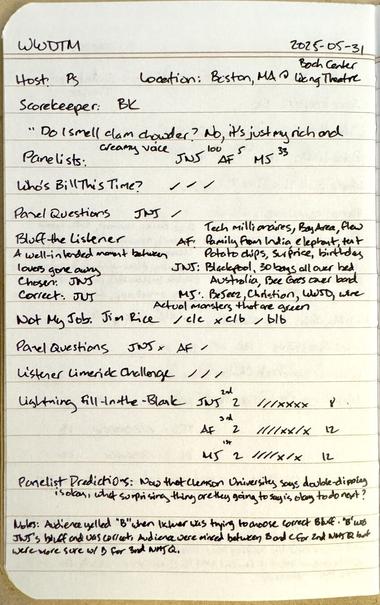 WWDTM 2025-05-31
Host: PS Location: Boston, MA @ Boch Center Wang Theatre
Scorekeeper: BK
"Do I smell clam chowder? No, it's just my rich and creamy voice
Panelists: JNJ 100 AF 5 MJ 33
Who's Bill This Time? / / /
Panel Questions JNJ /
Bluff the Listener AF: Tech Millionaires, Bay Area, flew
A well-intended moment between family from India elephant, tent
lovers gone away Potato chips, surprise, birthday
Chosen: JNJ JNJ: Blackpool, 30 boys all over bed
Correct: JNJ Australia, Bee Gees over board
MJ: Christian, WWJD, wire
Actual monsters that are green
Not My Job: Jim Rice / c|c x c|b / b|b
Panel Questions JNJ x AF /
Listener Limerick Challenge / / /
Lightning Fill-In-the-Blank JNJ 2nd 2 ////xxxx 8
AF 3rd 2 /////xx/x 12
MJ 1st 2 /////x/x 12
Panelist Predictions: Now that Clemson University says double-dipping
is okay, what surprising thing are they going to say is okay to do next?
Notes: Audience yelled "B" when listener was trying to choose correct Bluff. "B" was
JNJ's bluff and was correct. Audience were mixed between B and C for 2nd NMJ Q but
were more sure w/ B for 3rd NMJ Q.